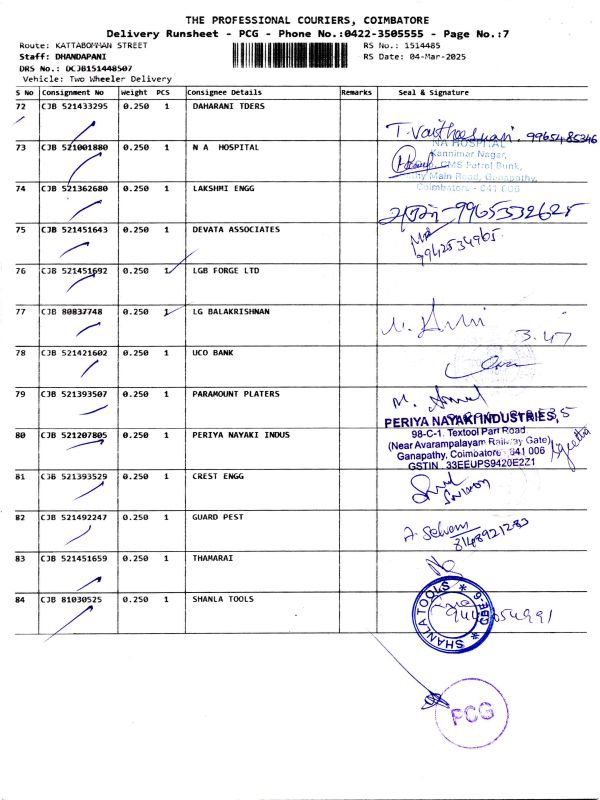 THE PROFESSIONAL COURIERS, COIMBATORE
Delivery Runsheet - PCG - Phone No.:0422-3505555 - Page No.:7
Route: KATTABOMMAN STREET
RS No.: 1514485
Staff: DHANDAPANI
RS Date: 04-Mar-2025
DRS No.: DCJB151448507
Vehicle: Two Wheeler Delivery
S No Consignment No Weight PCS Consignee Details Remarks Seal & Signature
72 CJB 521433295 0.250 1 DAHARANI TDERS
9965485346
73 CJB 521001880 0.250 1 N A HOSPITAL
NA HOSPITAL
Kannimar Nagar,
CMS Patrol Bunk,
Main Road, Ganapathy,
Coimbatore - 641 006
74 CJB 521362680 0.250 1 LAKSHMI ENGG
75 CJB 521451643 0.250 1 DEVATA ASSOCIATES
9942534965
76 CJB 521451692 0.250 1 LGB FORGE LTD
77 CJB 80837748 0.250 1 LG BALAKRISHNAN
3.47
78 CJB 521421602 0.250 1 UCO BANK
79 CJB 521393507 0.250 1 PARAMOUNT PLATERS
80 CJB 521207805 0.250 1 PERIYA NAYAKI INDUS
PERIYA NAYAKI INDUSTRIES,
98-C-1, Textool Part Road
(Near Avarampalayam Railway Gate)
Ganapathy, Coimbatore - 641 006
GSTIN : 33EEUPS9420E2Z1
81 CJB 521393529 0.250 1 CREST ENGG
82 CJB 521492247 0.250 1 GUARD PEST
A. Selvam
8148921283
83 CJB 521451659 0.250 1 THAMARAI
84 CJB 81030525 0.250 1 SHANLA TOOLS
SHANLA TOOLS
CBE-6
PCG